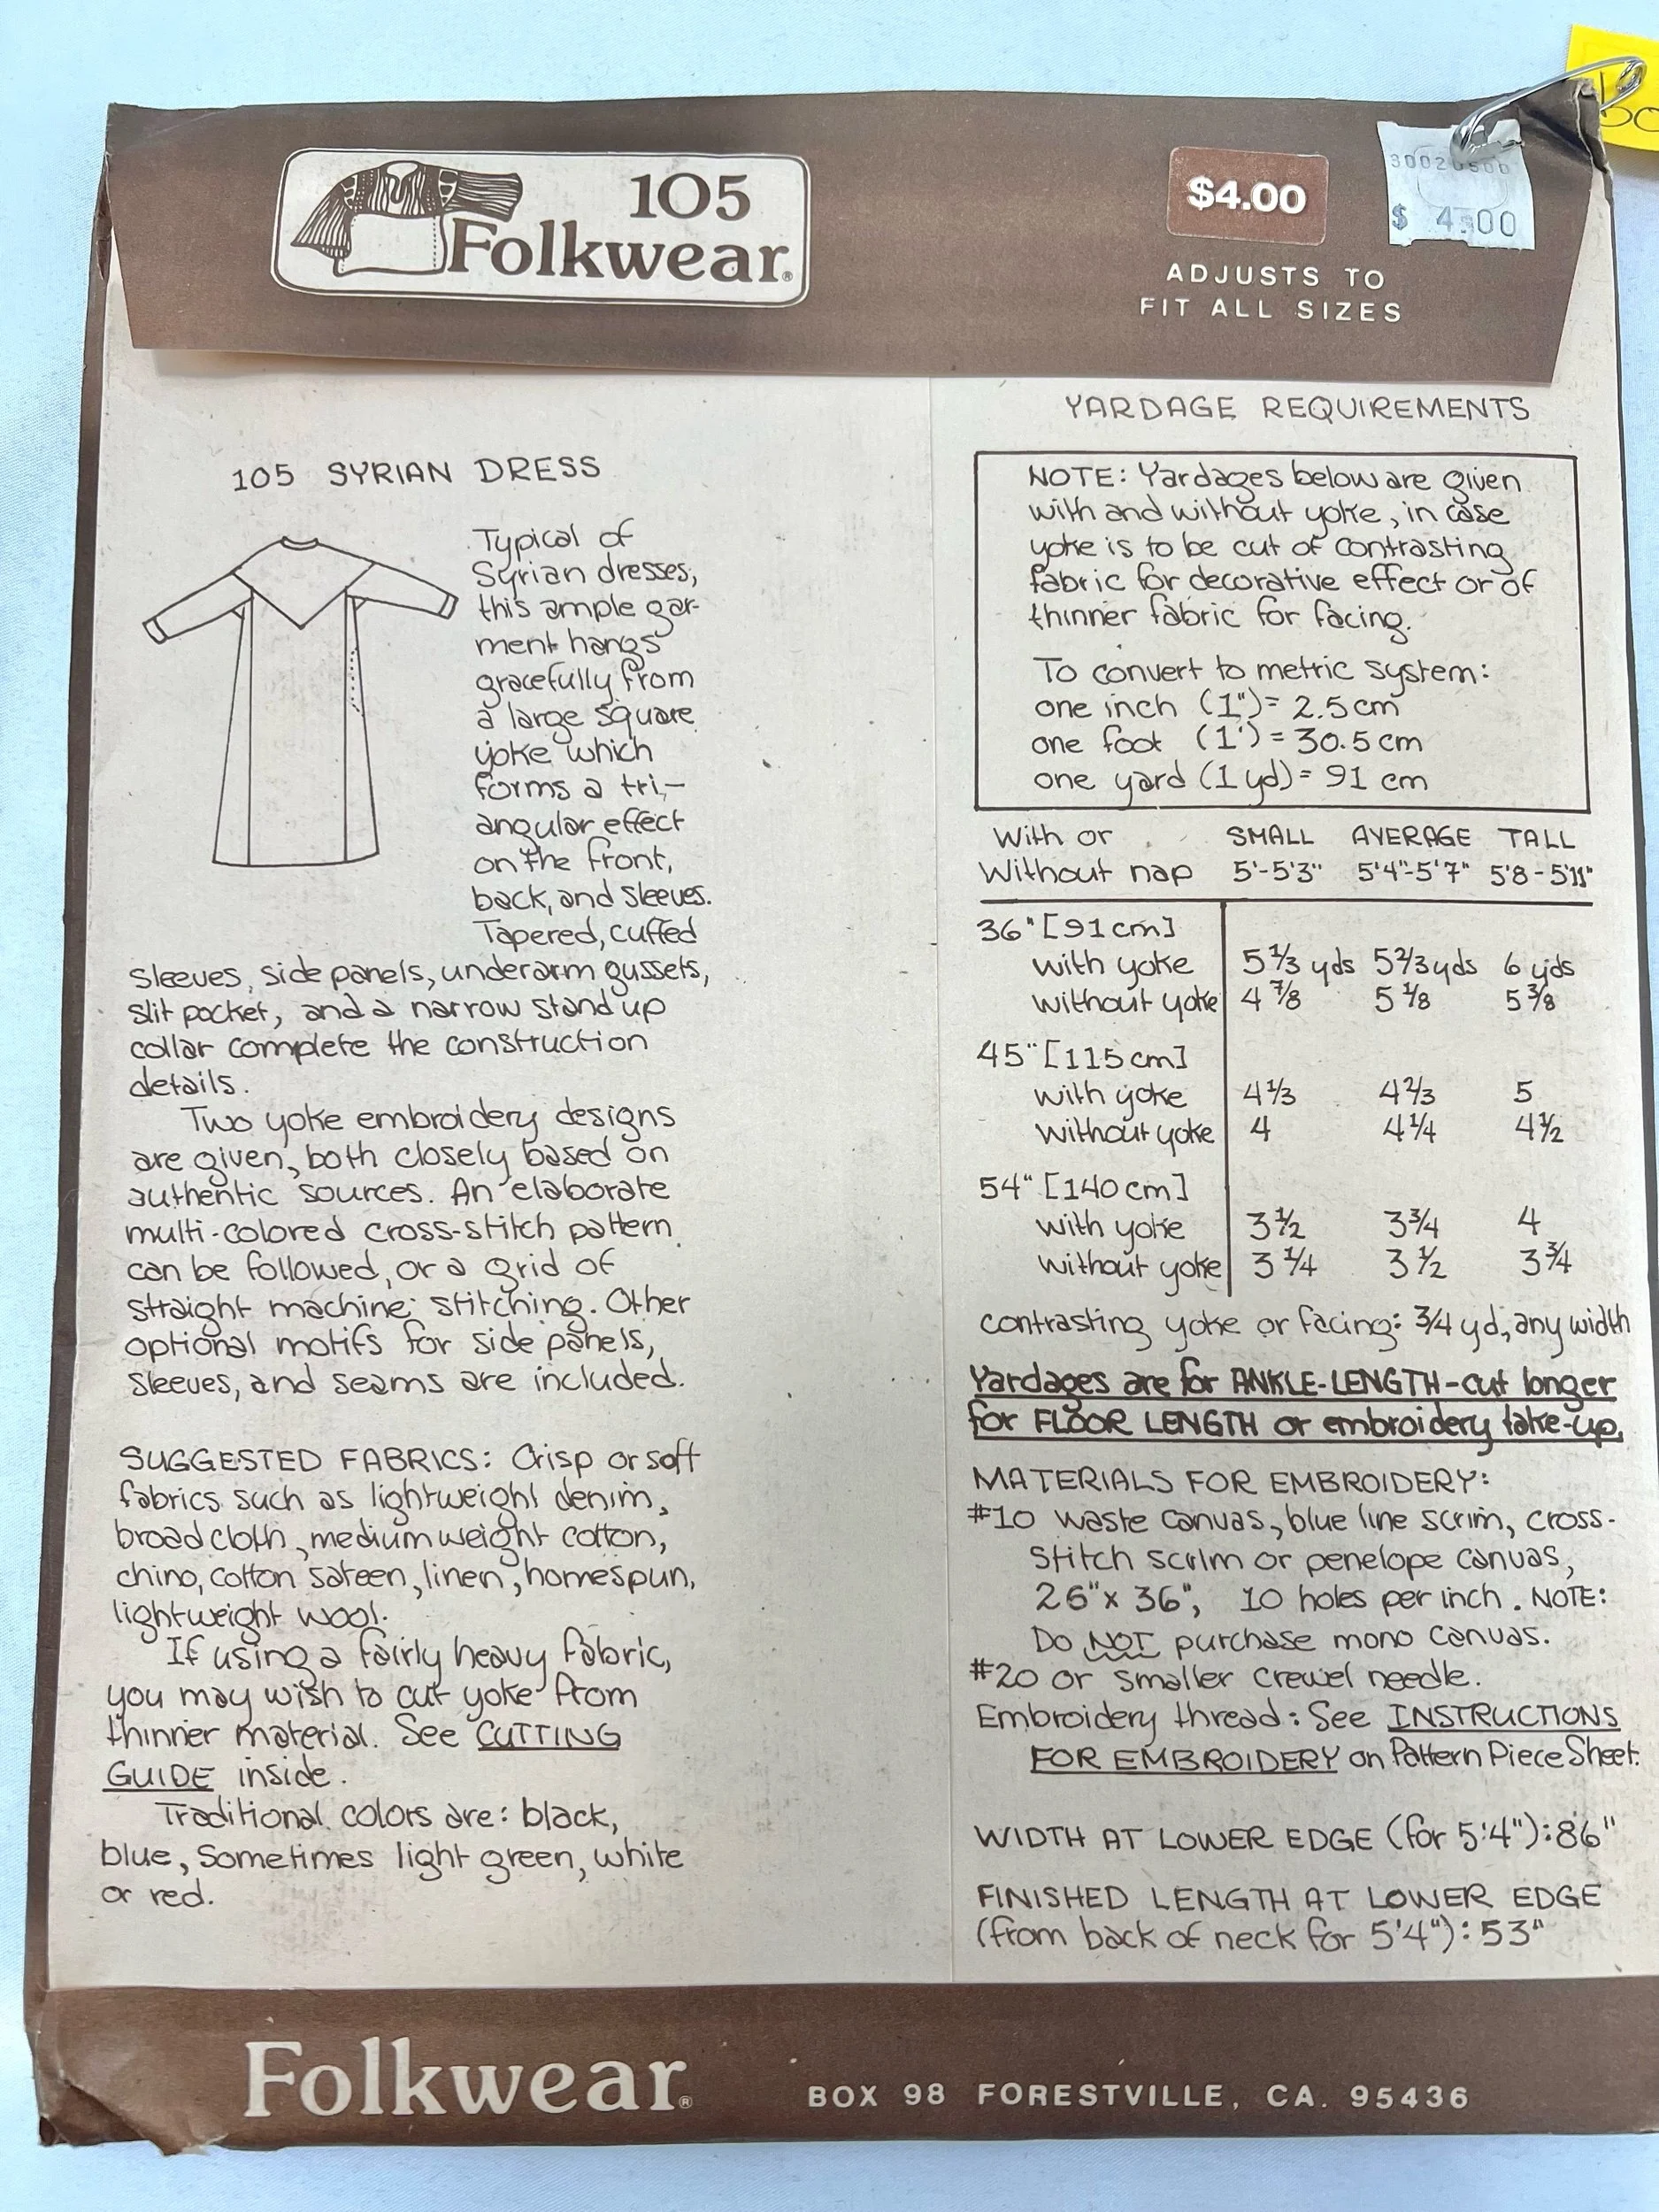 105
Folkwear®
$4.00
$ 4.00
ADJUSTS TO
FIT ALL SIZES
105 SYRIAN DRESS
Typical of
Syrian dresses,
this ample gar-
ment hangs
gracefully from
a large square
yoke which
forms a tri-
angular effect
on the front,
back, and sleeves.
Tapered, cuffed
sleeves, side panels, underarm gussets,
slit pocket, and a narrow stand up
collar complete the construction
details.
Two yoke embroidery designs
are given, both closely based on
authentic sources. An elaborate
multi-colored cross-stitch pattern
can be followed, or a grid of
straight machine stitching. Other
optional motifs for side panels,
sleeves, and seams are included.
SUGGESTED FABRICS: Crisp or soft
fabrics such as lightweight denim,
broadcloth, medium weight cotton,
chino, cotton sateen, linen, homespun,
lightweight wool.
If using a fairly heavy fabric,
you may wish to cut yoke from
thinner material. See CUTTING
GUIDE inside.
Traditional colors are: black,
blue, sometimes light green, white
or red.
YARDAGE REQUIREMENTS
NOTE: Yardages below are given
with and without yoke, in case
yoke is to be cut of contrasting
fabric for decorative effect or of
thinner fabric for facing.
To convert to metric system:
one inch (1") = 2.5 cm
one foot (1') = 30.5 cm
one yard (1 yd) = 91 cm
With or SMALL AVERAGE TALL
Without nap 5'-5'3" 5'4"-5'7" 5'8-5'11"
36" [91cm]
with yoke 5 1/3 yds 5 2/3 yds 6 yds
without yoke 4 7/8 5 1/8 5 3/8
45" [115cm]
with yoke 4 1/3 4 2/3 5
without yoke 4 4 1/4 4 1/2
54" [140cm]
with yoke 3 1/2 3 3/4 4
without yoke 3 1/4 3 1/2 3 3/4
contrasting yoke or facing: 3/4 yd, any width
Yardages are for ANKLE-LENGTH-cut longer
for FLOOR LENGTH or embroidery take-up.
MATERIALS FOR EMBROIDERY:
#10 waste canvas, blue line scrim, cross-
stitch scrim or penelope canvas,
26" x 36", 10 holes per inch. NOTE:
Do NOT purchase mono canvas.
#20 or smaller crewel needle.
Embroidery thread: See INSTRUCTIONS
FOR EMBROIDERY on Pattern Piece Sheet.
WIDTH AT LOWER EDGE (for 5'4"): 86"
FINISHED LENGTH AT LOWER EDGE
(from back of neck for 5'4"): 53"
Folkwear®
BOX 98 FORESTVILLE, CA. 95436